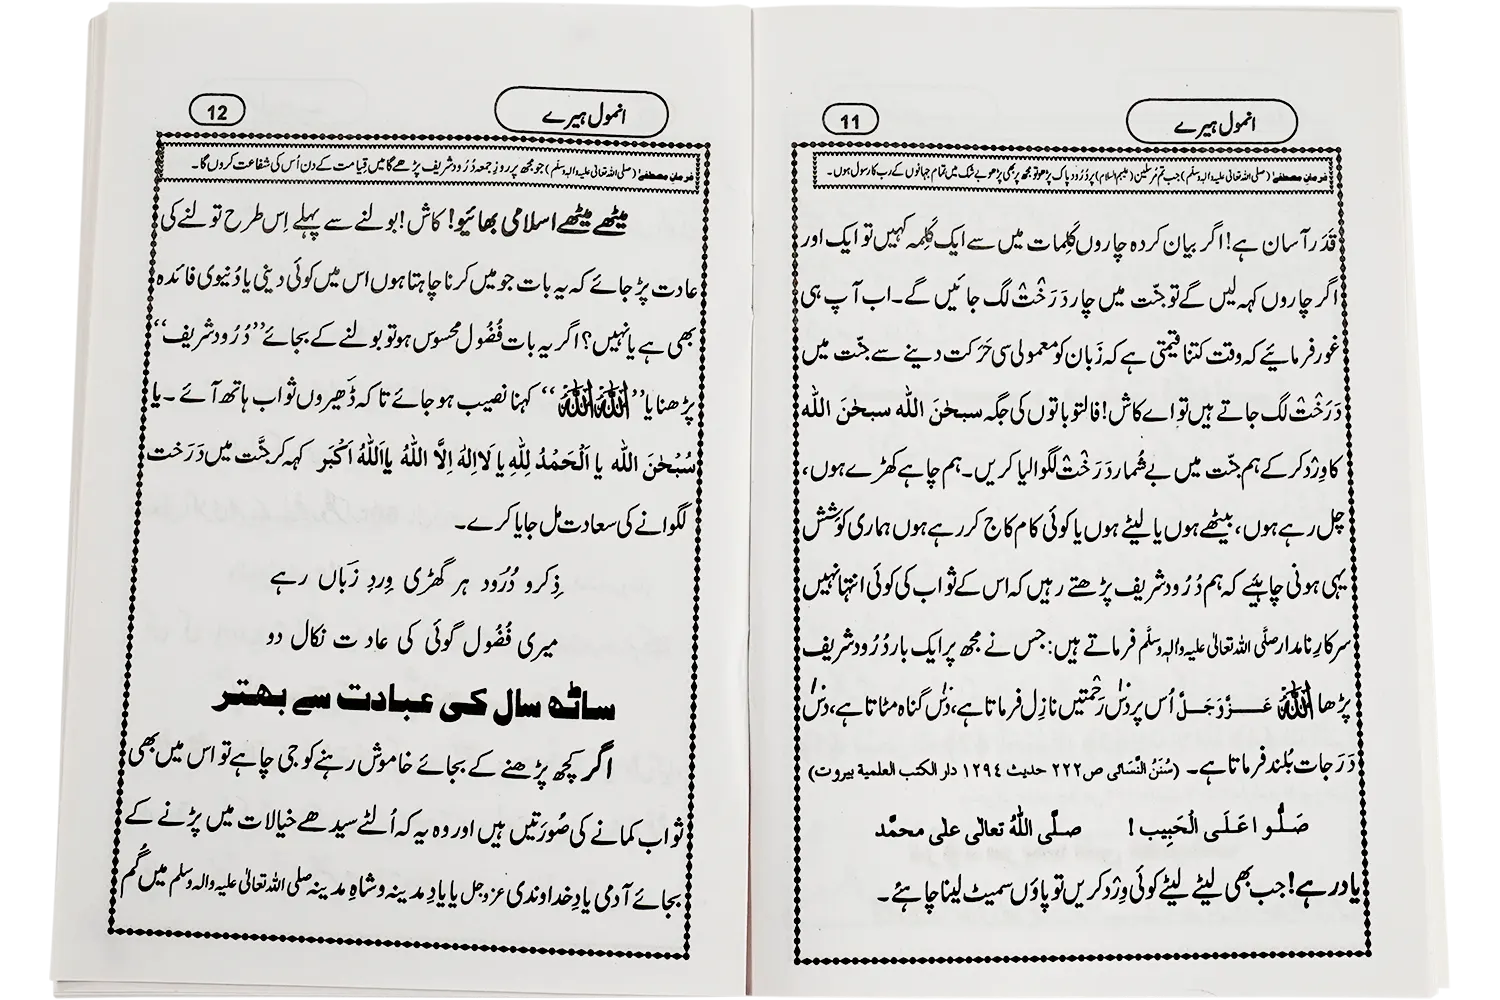 انمول ہیرے
11
فرمانِ مصطفےٰ (صلی اللہ تعالیٰ علیہ والہ وسلم) جب تم مُرسلین (علیہم السلام) پر دُرُود پاک پڑھو تو مجھ پر بھی پڑھو بے شک میں تمام جہانوں کے رب کا رسول ہوں۔
قَدَر آسان ہے! اگر بیان کردہ چاروں کَلِمات میں سے ایک کَلِمہ کہیں تو ایک اور
اگر چاروں کہہ لیں گے تو جنّت میں چار دَرَخْتْ لگ جائیں گے۔ اب آپ ہی
غور فرمائیے کہ وقت کتنا قیمتی ہے کہ زَبان کو معمولی سی حَرَکت دینے سے جنّت میں
دَرَخْتْ لگ جاتے ہیں تو اے کاش! فالتو باتوں کی جگہ سبحٰنَ اللہ سبحٰنَ اللہ
کا وِرْد کر کے ہم جنّت میں بے شُمار دَرَخْتْ لگوا لیا کریں۔ ہم چاہے کھڑے ہوں،
چل رہے ہوں، بیٹھے ہوں یا لیٹے ہوں یا کوئی کام کاج کر رہے ہوں ہماری کوشش
یہی ہونی چاہیئے کہ ہم دُرُود شریف پڑھتے رہیں کہ اس کے ثواب کی کوئی انتہا نہیں
سرکارِ نامدار صلَّی اللہ تعالیٰ علیہ والہٖ وسلَّم فرماتے ہیں: جس نے مجھ پر ایک بار دُرُود شریف
پڑھا اللّٰہُ عَزَّوَجَلَّ اُس پر دَسْ رَحْمتیں نازِل فرماتا ہے، دَسْ گناہ مٹاتا ہے، دَسْ
دَرَجات بُلند فرماتا ہے۔ (سُنَنُ النَّسَائی ص ۲۲۲ حدیث ۱۲۹٤ دار الکتب العلمیة بیروت)
صَلُّوا عَلَی الْحَبِیب! صلَّی اللہُ تعالٰی علٰی محمَّد
یاد رہے! جب بھی لیٹے لیٹے کوئی وِرْد کریں تو پاؤں سمیٹ لینا چاہئے۔
انمول ہیرے
12
فرمانِ مصطفےٰ (صلی اللہ تعالیٰ علیہ والہ وسلم) جو مجھ پر روزِ جمعہ دُرُود شریف پڑھے گا میں قیامت کے دن اُس کی شفاعت کروں گا۔
میٹھے میٹھے اسلامی بھائیو! کاش! بولنے سے پہلے اِس طرح تولنے کی
عادت پڑ جائے کہ یہ بات جو میں کرنا چاہتا ہوں اس میں کوئی دینی یا دُنیوی فائدہ
بھی ہے یا نہیں؟ اگر یہ بات فُضُول محسوس ہو تو بولنے کے بجائے ’’دُرُود شریف‘‘
پڑھنا یا ’’اللّٰہُ اللّٰہُ‘‘ کہنا نصیب ہو جائے تاکہ ڈَھیروں ثواب ہاتھ آئے۔ یا
سُبْحٰنَ اللہ یا اَلْحَمْدُ لِلّٰهِ یا لَا اِلٰهَ اِلَّا اللہُ یا اَللہُ اَکْبَر کہہ کر جنَّت میں دَرَخت
لگوانے کی سعادت مل جایا کرے۔
ذِکر و دُرُود ہر گھڑی وِردِ زَباں رہے
میری فُضُول گوئی کی عادت نکال دو
ساٹھ سال کی عبادت سے بہتر
اگر کچھ پڑھنے کے بجائے خاموش رہنے کو جی چاہے تو اس میں بھی
ثواب کمانے کی صُورَتیں ہیں اور وہ یہ کہ اُلٹے سیدھے خیالات میں پڑنے کے
بجائے آدمی یادِ خداوندی عزوجل یا یادِ مدینہ و شاہِ مدینہ صلی اللہ تعالیٰ علیہ والہ وسلم میں گُم